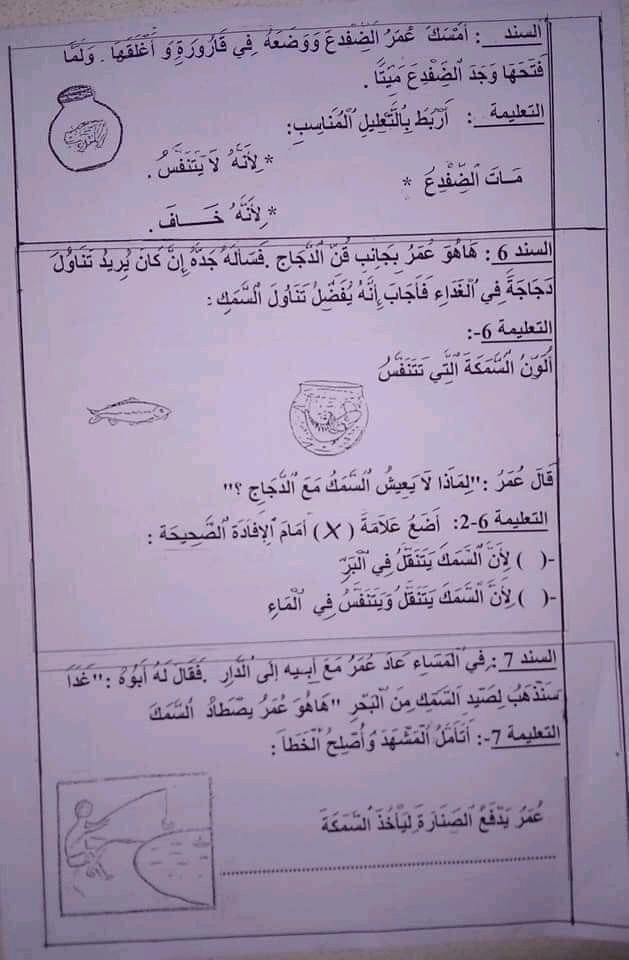 السند : أَمْسَكَ عُمَرُ الضِّفْدِعَ وَوَضَعَهُ فِي قَارُورَةٍ وَ أَغْلَقَهَا . وَلَمَّا
فَتَحَهَا وَجَدَ الضِّفْدِعَ مَيِّتًا .
التعليمة : أَرْبِطُ بِالتَّعْلِيلِ الْمُنَاسِبِ:
* لِأَنَّهُ لَا يَتَنَفَّسُ .
مَاتَ الضِّفْدِعُ *
* لِأَنَّهُ خَــافَ .
السند 6 : هَاهُوَ عُمَرُ بِجَانِبِ قُنِّ الدَّجَاجِ .فَسَأَلَهُ جَدُّهُ إِنْ كَانَ يُرِيدُ تَنَاوُلَ
دَجَاجَةً فِي الْغَدَاءِ فَأَجَابَ إِنَّهُ يُفَضِّلُ تَنَاوُلَ السَّمَكِ :
التعليمة 6-:
أُلَوِّنُ السَّمَكَةَ الَّتِي تَتَنَفَّسُ
قَالَ عُمَرُ :"لِمَاذَا لَا يَعِيشُ السَّمَكُ مَعَ الدَّجَاجِ ؟"
التعليمة 6-2: أَضَعُ عَلَامَةَ (X) أَمَامَ الْإِفَادَةِ الصَّحِيحَةِ :
-( ) لِأَنَّ السَّمَكَ يَتَنَقَّلُ فِي الْبَرِّ
-( ) لِأَنَّ السَّمَكَ يَتَنَقَّلُ وَيَتَنَفَّسُ فِي الْمَاءِ
السند 7 : فِي الْمَسَاءِ عَادَ عُمَرُ مَعَ أَبِيهِ إِلَى الدَّارِ .فَقَالَ لَهُ أَبُوهُ :"غَدًا
سَنَذْهَبُ لِصَيْدِ السَّمَكِ مِنَ الْبَحْرِ "هَاهُوَ عُمَرُ يَصْطَادُ السَّمَكَ
التعليمة 7-: أَتَأَمَّلُ الْمَشْهَدَ وَأُصْلِحُ الْخَطَأَ :
عُمَرُ يَدْفَعُ الصَّنَارَةَ لِيَأْخُذَ السَّمَكَةَ